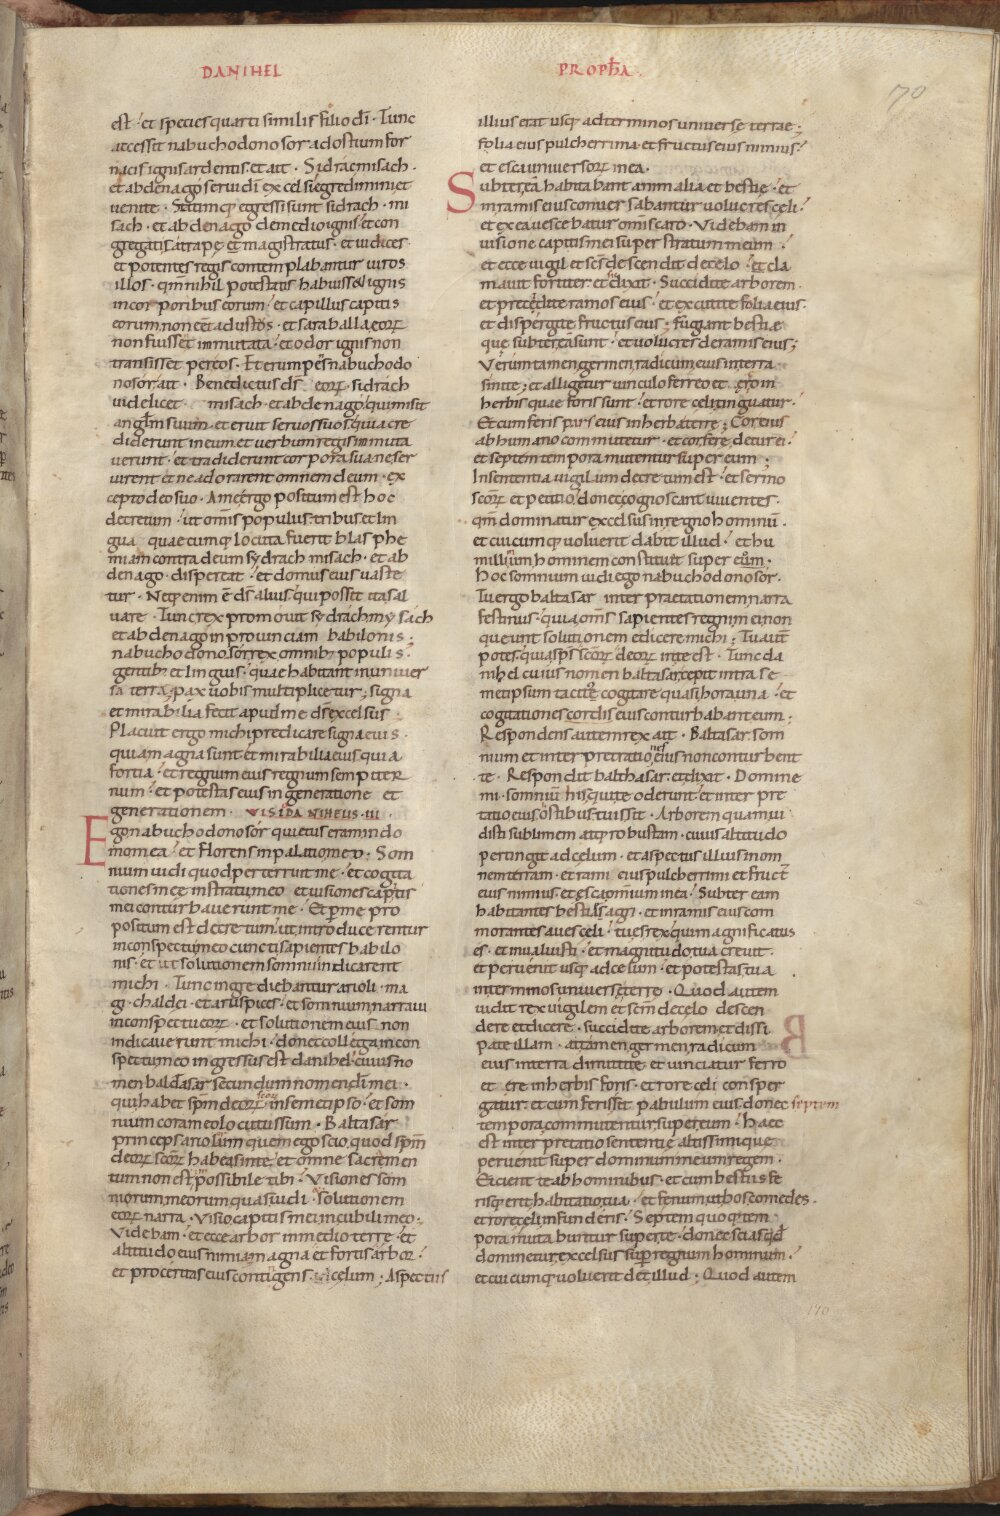 DANIHEL
PROPHA
70
est · et species quarti similis filio di · Tunc
accessit nabuchodonosor ad ostium for
nacis ignis ardentis et ait · Sidrac misach ·
et abdenago serui di excelsi egredimini et
uenite · Statimq; egressi sunt sidrach · mi
sach · et abdenago de medio ignis et con
gregati satrapę et magistratus · et iudices ·
et potentes regis contemplabantur uiros
illos · qm nihil potestatis habuisset ignis
in corporibus eorum · et capillus capitis
eorum non eet adustos · et saraballa eorr
non fuisset immutata · et odor ignis non
transisset per eos · Et erumpens nabuchodo
nosor ait · Benedictus ds eorr · sidrach
uidelicet misach et abdenago qui misit
anglm suum · et eruit seruos suos quia cre
diderunt in eum et uerbum regis immuta
uerunt · et tradiderunt corpora sua ne ser
uirent et ne adorarent omnem deum · ex
cepto deo suo · A me ergo positum est hoc
decretum · ut omis populus tribus et lin
gua quaecumq; locuta fuerit blasphe
miam contra deum sydrach misach · et ab
denago · dispereat · et domus eius uaste
tur · Neq; enim e ds alius qui possit ita sal
uare · Tunc rex promouit sydrach mysach
et abdenago in prouinciam babilonis ;
nabuchodonosor rex omnib; populis ·
gentib; et linguis · quae habitant in uniuer
sa terra · pax uobis multiplicetur ; signa
et mirabilia fecit apud me ds excelsus ·
Placuit ergo michi predicare signa eius ·
quia magna sunt et mirabilia eius quia
fortia · et regnum eius regnum sempiter
num · et potestas eius in generatione et
generationem · VISI DANIHELIS · III ·
Ego nabuchodonosor quietus eram in do
mo mea · et florens in palatio meo · Som
nium uidi quod perterruit me · et cogita
tiones meę in strato meo et uisiones capitis
mei conturbauerunt me · Et p me pro
positum est decretum ut introducerentur
in conspectu meo cuncti sapientes babilo
nis · et ut solutionem somnii indicarent
michi · Tunc ingrediebantur arioli · ma
gi · chaldei · et aruspices · et somnium narraui
in conspectu eorr · et solutionem eius non
indicauerunt michi · donec collega in con
spectu meo ingressus est danihel · cui no
men baldasar secundum nomen di mei ·
qui habet spm deorr scorr in semetipso · et som
nium coram eo locutus sum · Baltasar
princeps ariolum quem ego scio quod spm
deorr scorr habeas in te · et omne sacramen
tum non est impossibile tibi · Visiones som
niorum meorum quas uidi · solutionem
eorr narra · Visio capitis mei in cubili meo ·
Videbam · et ecce arbor in medio terre · et
altitudo eius nimia · magna et fortis arbor ·
et proceritas eius contingens celum ; Aspectus
illius erat usq; ad terminos uniuerse terrae ;
folia eius pulcherrima · et fructus eius nimius ·
et esca uniuersorr in ea ·
Subter ea habitabant animalia et bestię · et
in ramis eius conuersabantur uolucres celi ·
et ex ea uescebatur omis caro · Videbam in
uisione capitis mei super stratum meum ·
et ecce uigil et scs descendit de celo · et cla
mauit fortiter et sic dixit · Succidite arborem ·
et precedite ramos eius · et excutite folia eius ·
et dispergite fructus eius · fugiant bestiae
que subter ea sunt · et uolucres de ramis eius ;
Veruntamen germen radicum eius in terra
sinite ; et alligetur uinculo ferreo et ęreo in
herbis quae foris sunt · et rore celi tinguatur ·
Et cum feris pars eius in herba terre ; Cor eius
ab humano commutetur · et cor fere detur ei ·
et septem tempora mutentur super eum ;
In sententia uigilum decretum est · et sermo
scorr et petitio · donec cognoscant uiuentes ·
qm dominatur excelsus in regno hominu ·
et cuicumq; uoluerit dabit illud · et hu
millimum hominem constituet super eum ·
hoc somnium uidi ego nabuchodonosor ·
Tu ergo baltasar interpraetationem narra
festinus · quia oms sapientes regni mei non
queunt solutionem edicere michi ; Tu aut
potes quia sps scorr deorr in te est · Tunc da
nihel cuius nomen baltasar cepit intra se
metipsum tacitus cogitare quasi hora una · et
cogitationes cordis eius conturbabant eum ;
Respondens autem rex ait · Baltasar som
nium et interpretationes eius non conturbent
te · Respondit balthasar · et dixit · Domine
mi · somniu his qui te oderunt · et interpre
tatio eius hostibus tuis sit · Arborem quam ui
disti sublimem atq; robustam · cuius altitudo
pertingit ad celum · et aspectus illius in om
nem terram · et rami eius pulcherrimi et fruct
eius nimius · et esca omnium in ea · Subter eam
habitantes bestias agri · et in ramis eius com
morantes aues celi · tu es rex qui magnificatus
es · et inualuisti · et magnitudo tua creuit ·
et peruenit usq; ad celum · et potestas tua
in terminos uniuersę terrę · Quod autem
uidit rex uigilem et scm de celo descen
dere et dicere · succidite arborem et dissi
pate illam · attamen germen radicum
eius in terra dimittite et uinciatur ferro
et ere in herbis foris · et rore celi consper
gatur · et cum feris sit pabulum eius donec septem
tempora commutentur super eum · haec
est interpretatio sententie altissimi que
peruenit super dominum meum regem ·
Eicient te ab hominibus · et cum bestiis fe
risq; erit habitatio tua · et fenum ut bos comedes ·
et rore celi infunderis · Septem quoq; tem
pora mutabuntur super te · donec scias qd
dominetur excelsus super regnum hominum ·
et cuicumq; uoluerit det illud ; Quod autem
170